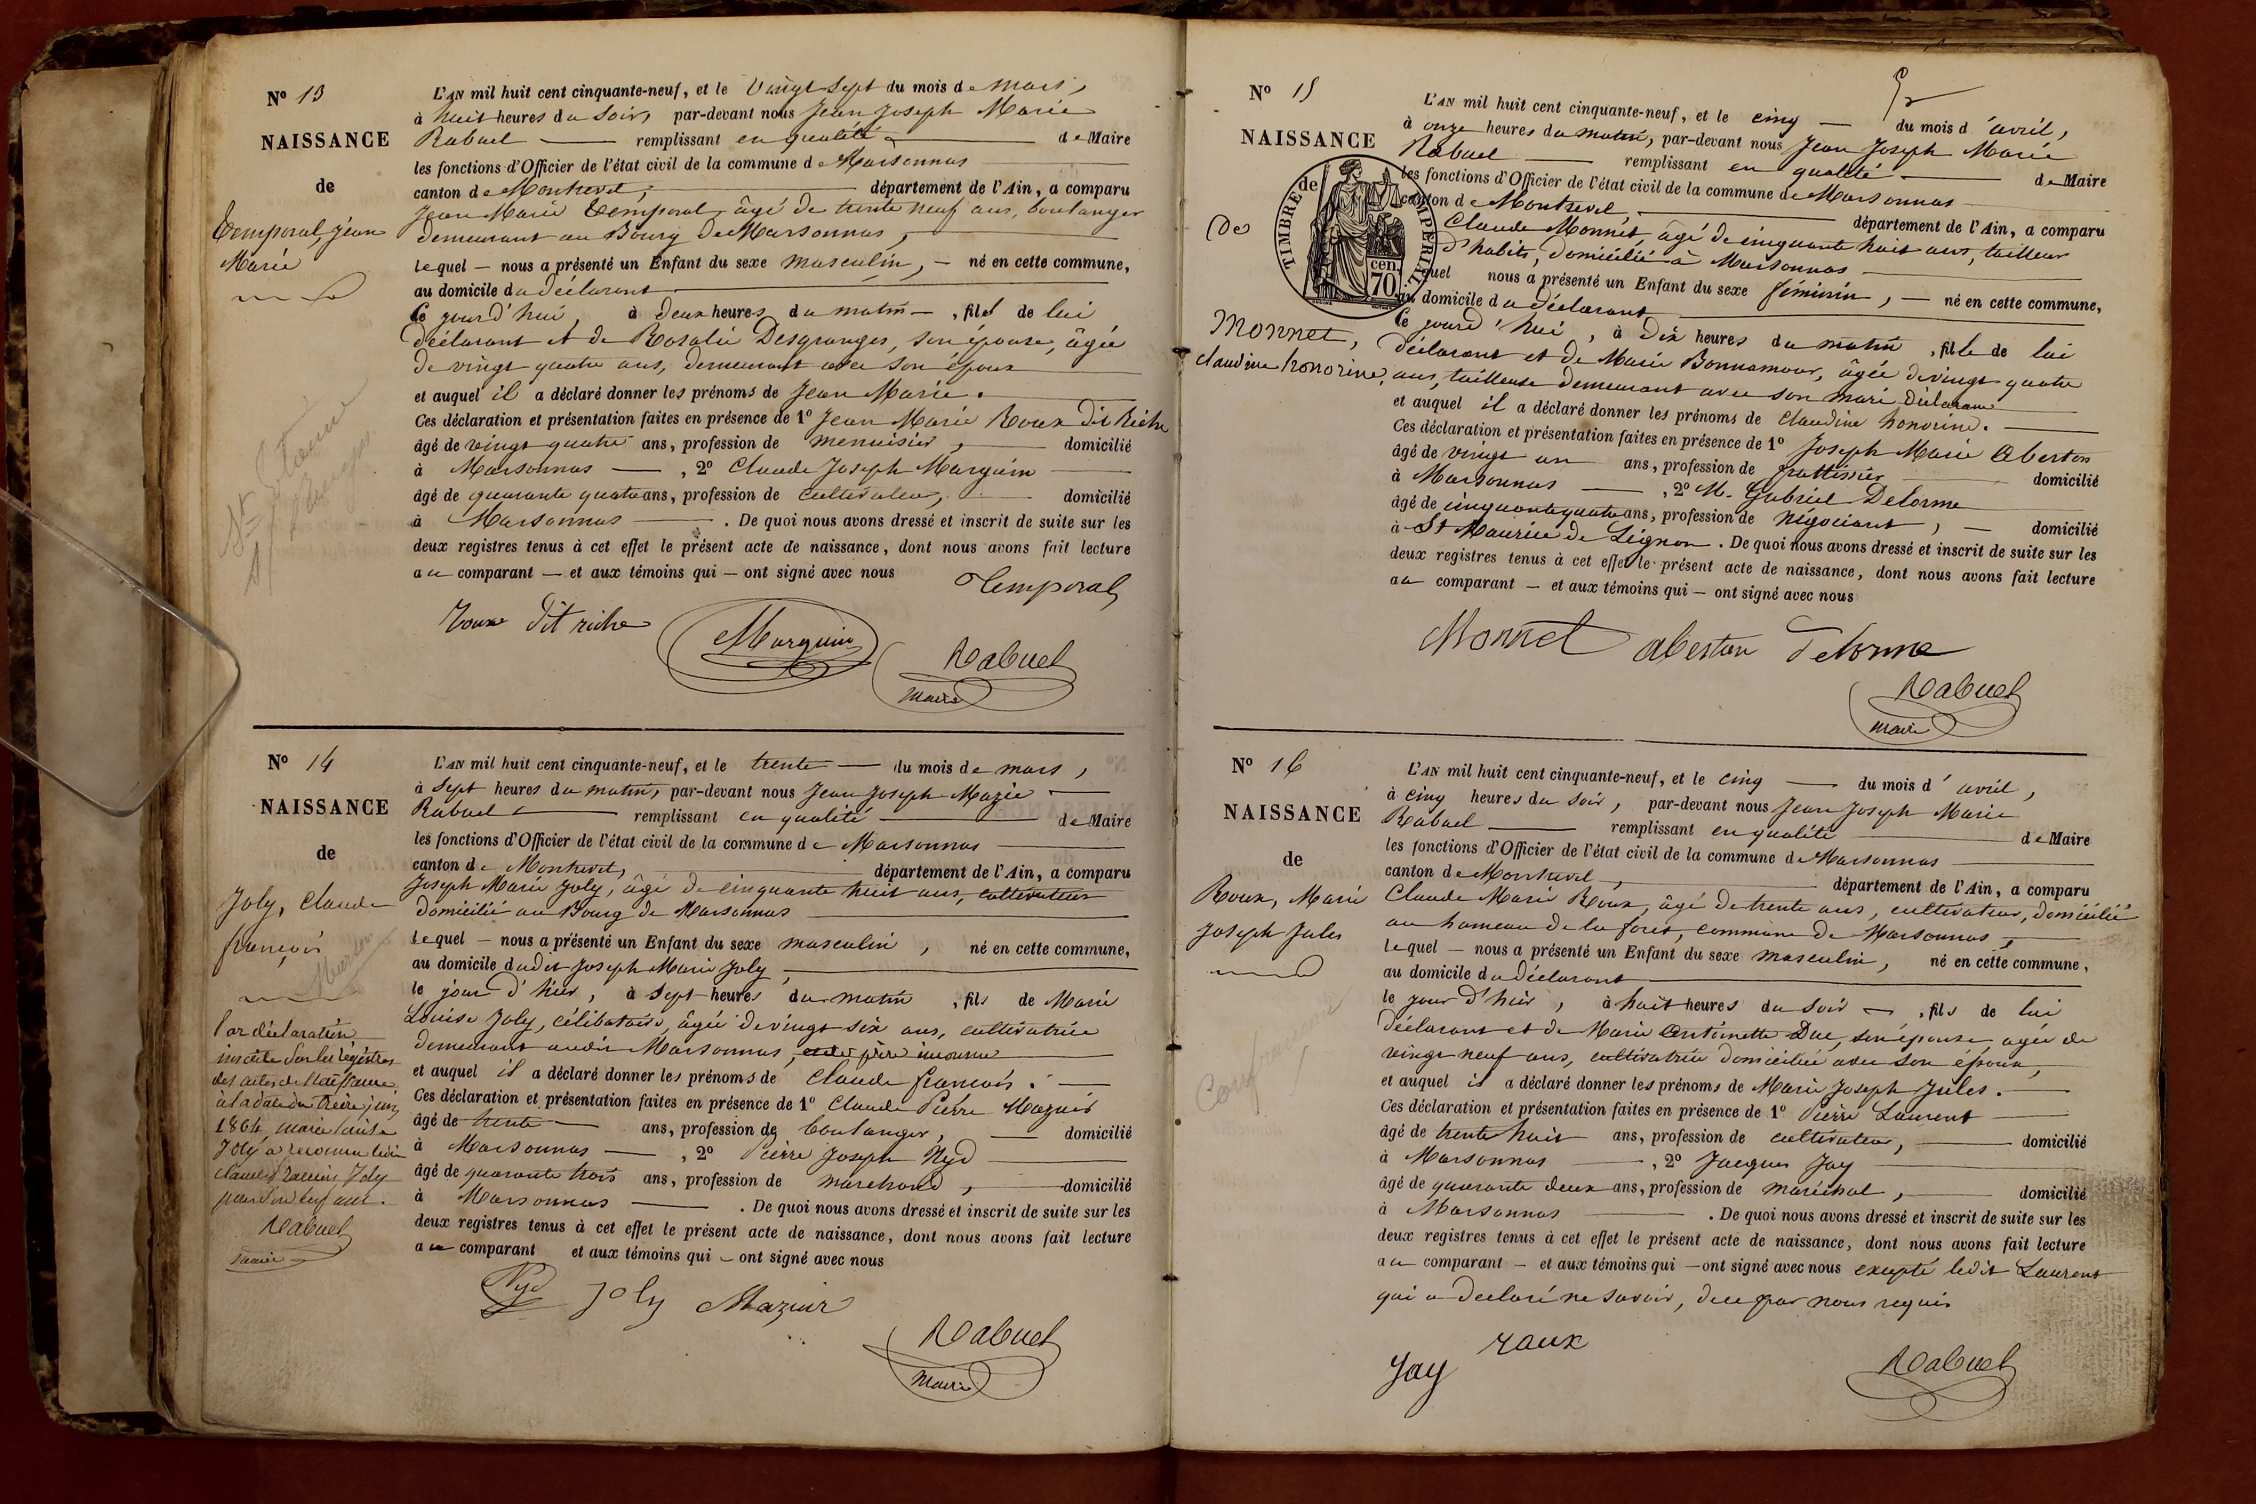 N° 13
NAISSANCE
de
Temporal, Jean
Marie
L'AN mil huit cent cinquante-neuf, et le vingt sept du mois de mars,
à huit heures du soir, par-devant nous Jean Joseph Marie
Rabuel remplissant en qualité de Maire
les fonctions d'Officier de l'état civil de la commune de Marsonnas
canton de Montrevel, département de l'Ain, a comparu
Jean Marie Temporal, âgé de trente neuf ans, boulanger
demeurant au Bourg de Marsonnas,
lequel nous a présenté un Enfant du sexe masculin, né en cette commune,
au domicile du déclarant
ce jourd'hui, à deux heures du matin, fils de lui
déclarant et de Rosalie Desgranges, son épouse, âgée
de vingt quatre ans, demeurant avec son époux
et auquel il a déclaré donner les prénoms de Jean Marie.
Ces déclaration et présentation faites en présence de 1° Jean Marie Roux dit Riche
âgé de vingt quatre ans, profession de menuisier, domicilié
à Marsonnas, 2° Claude Joseph Marguin
âgé de quarante quatre ans, profession de cultivateur, domicilié
à Marsonnas. De quoi nous avons dressé et inscrit de suite sur les
deux registres tenus à cet effet le présent acte de naissance, dont nous avons fait lecture
au comparant et aux témoins qui ont signé avec nous
Temporal
roux dit riche Marguin Rabuel
maire
N° 14
NAISSANCE
de
Joly, Claude
françois
Par déclaration
inscrite sur les registres
des actes de Naissance
à la date du treize juin
1864 marie louise
Joly a reconnu ledit
claude françois Joly
pour son enfant.
Rabuel
maire
L'AN mil huit cent cinquante-neuf, et le trente du mois de mars,
à sept heures du matin, par-devant nous Jean Joseph Marie
Rabuel remplissant en qualité de Maire
les fonctions d'Officier de l'état civil de la commune de Marsonnas
canton de Montrevel, département de l'Ain, a comparu
Joseph Marie Joly, âgé de cinquante huit ans, cultivateur
domicilié au Bourg de Marsonnas
lequel nous a présenté un Enfant du sexe masculin, né en cette commune,
au domicile dudit Joseph Marie Joly,
le jour d'hier, à sept heures du matin, fils de Marie
Louise Joly, célibataire, âgée de vingt six ans, cultivatrice
demeurant audit Marsonnas, et de père inconnu
et auquel il a déclaré donner les prénoms de Claude françois.
Ces déclaration et présentation faites en présence de 1° Claude Pierre Mazuir
âgé de trente ans, profession de boulanger, domicilié
à Marsonnas, 2° Pierre Joseph Nyd
âgé de quarante trois ans, profession de marchand, domicilié
à Marsonnas. De quoi nous avons dressé et inscrit de suite sur les
deux registres tenus à cet effet le présent acte de naissance, dont nous avons fait lecture
au comparant et aux témoins qui ont signé avec nous
Nyd Joly Mazuir
Rabuel
maire
N° 15
NAISSANCE
de
TIMBRE IMPÉRIAL
70 cen.
Monnet,
claudine honorine,
L'AN mil huit cent cinquante-neuf, et le cinq du mois d'avril,
à onze heures du matin, par-devant nous Jean Joseph Marie
Rabuel remplissant en qualité de Maire
les fonctions d'Officier de l'état civil de la commune de Marsonnas
canton de Montrevel, département de l'Ain, a comparu
Claude Monnet, âgé de cinquante huit ans, tailleur
d'habits, domicilié à Marsonnas
quel nous a présenté un Enfant du sexe féminin, né en cette commune,
au domicile du déclarant
ce jourd'hui, à dix heures du matin, fille de lui
déclarant et de Marie Bonnamour, âgée de vingt quatre
ans, tailleuse demeurant avec son mari déclarant
et auquel il a déclaré donner les prénoms de Claudine honorine.
Ces déclaration et présentation faites en présence de 1° Joseph Marie Oberton
âgé de vingt un ans, profession de domicilié
à Marsonnas, 2° M. Gabriel Delorme
âgé de cinquante quatre ans, profession de négociant, domicilié
à St Maurice de Lignon. De quoi nous avons dressé et inscrit de suite sur les
deux registres tenus à cet effet le présent acte de naissance, dont nous avons fait lecture
au comparant et aux témoins qui ont signé avec nous
Monnet oberton Delorme
Rabuel
maire
N° 16
NAISSANCE
de
Roux, Marie
Joseph Jules
L'AN mil huit cent cinquante-neuf, et le cinq du mois d'avril,
à cinq heures du soir, par-devant nous Jean Joseph Marie
Rabuel remplissant en qualité de Maire
les fonctions d'Officier de l'état civil de la commune de Marsonnas
canton de Montrevel, département de l'Ain, a comparu
Claude Marie Roux, âgé de trente ans, cultivateur, domicilié
au hameau de la forêt, commune de Marsonnas,
lequel nous a présenté un Enfant du sexe masculin, né en cette commune,
au domicile du déclarant
le jour d'hier, à huit heures du soir, fils de lui
déclarant et de Marie Antoinette Duc, son épouse, agée de
vingt neuf ans, cultivatrice domiciliée avec son époux,
et auquel il a déclaré donner les prénoms de Marie Joseph Jules.
Ces déclaration et présentation faites en présence de 1° Pierre Laurent
âgé de trente huit ans, profession de cultivateur, domicilié
à Marsonnas, 2° Jacques Jay
âgé de quarante deux ans, profession de maréchal, domicilié
à Marsonnas. De quoi nous avons dressé et inscrit de suite sur les
deux registres tenus à cet effet le présent acte de naissance, dont nous avons fait lecture
au comparant et aux témoins qui ont signé avec nous excepté ledit Laurent
qui a déclaré ne savoir, de ce par nous requis
Jay roux Rabuel